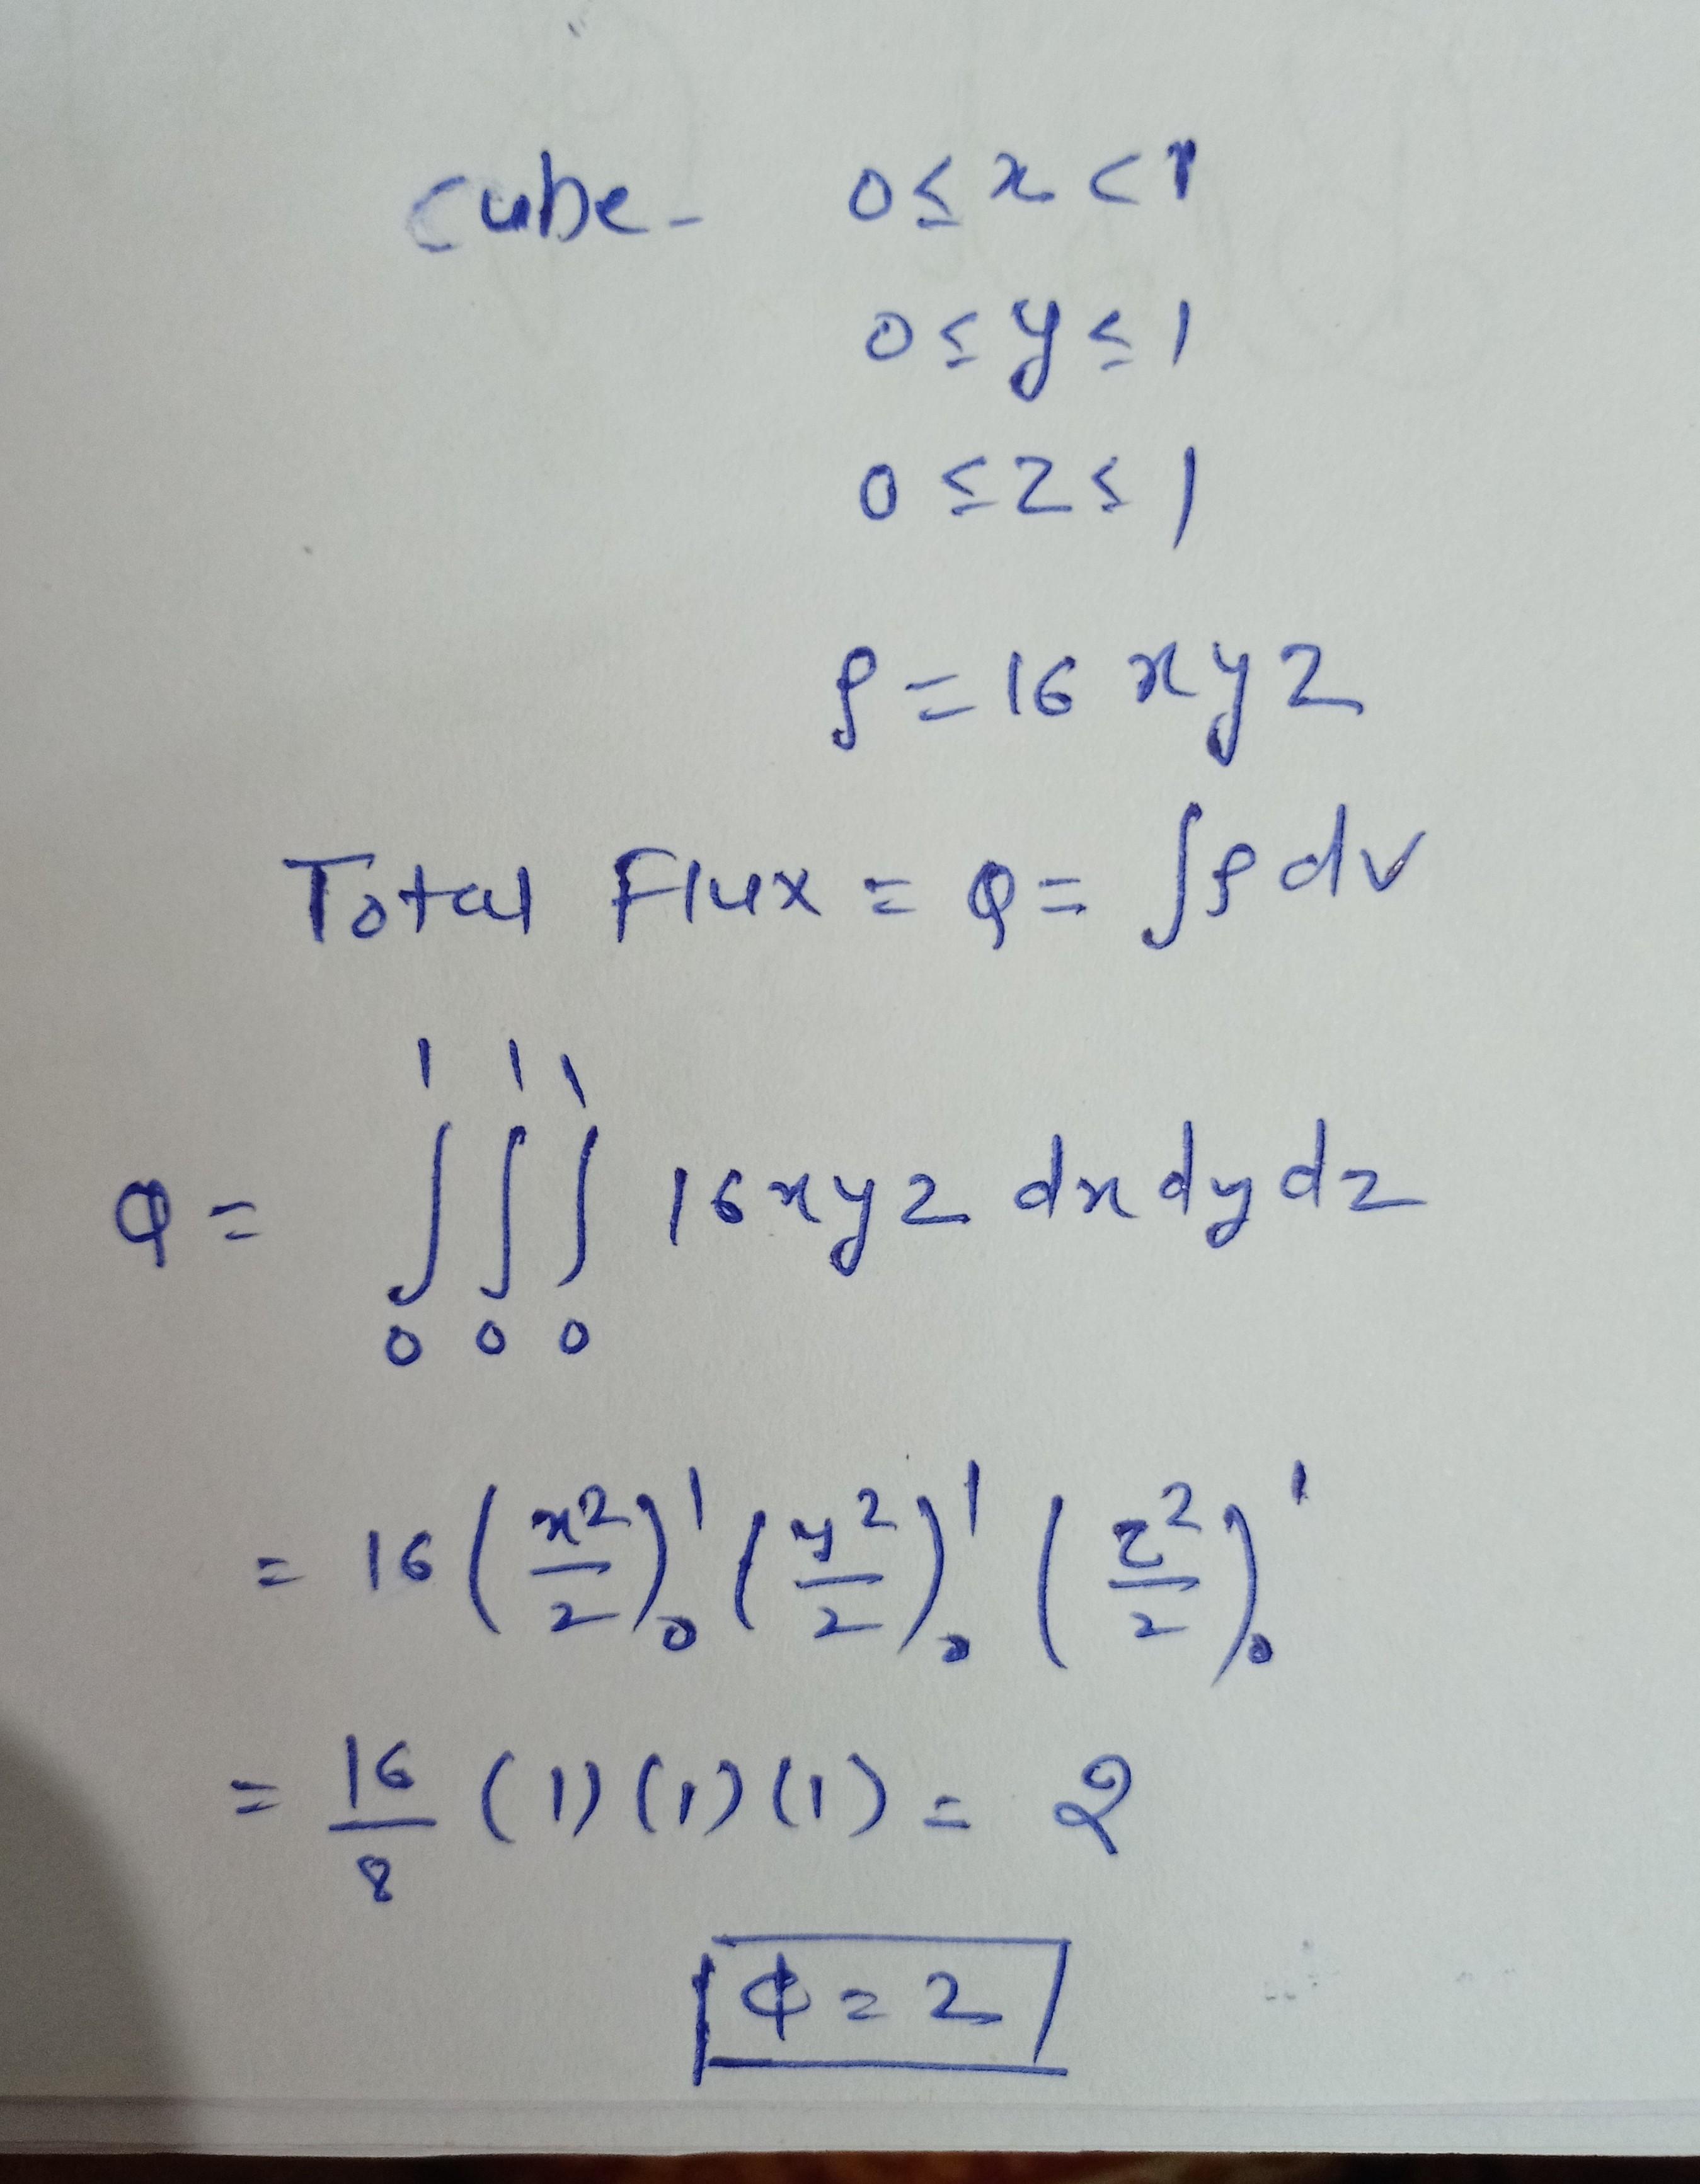 cube - 0 ≤ x < 1
0 ≤ y ≤ 1
0 ≤ z ≤ 1
ρ = 16 xyz
Total Flux = Q = ∫ρ dv
Q = ∫₀¹ ∫₀¹ ∫₀¹ 16xyz dx dy dz
= 16 (x²/2)₀¹ (y²/2)₀¹ (z²/2)₀¹
= 16/8 (1)(1)(1) = 2
ϕ = 2